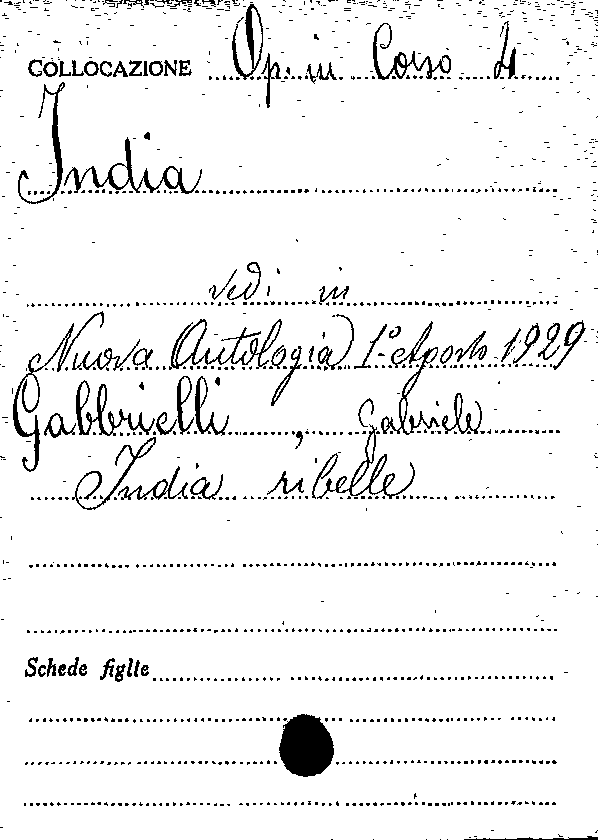 COLLOCAZIONE Op. in Corso 4
India
vedi in
Nuova Antologia 1° Agosto 1929
Gabbrielli, Gabriele
India ribelle
Schede figlie